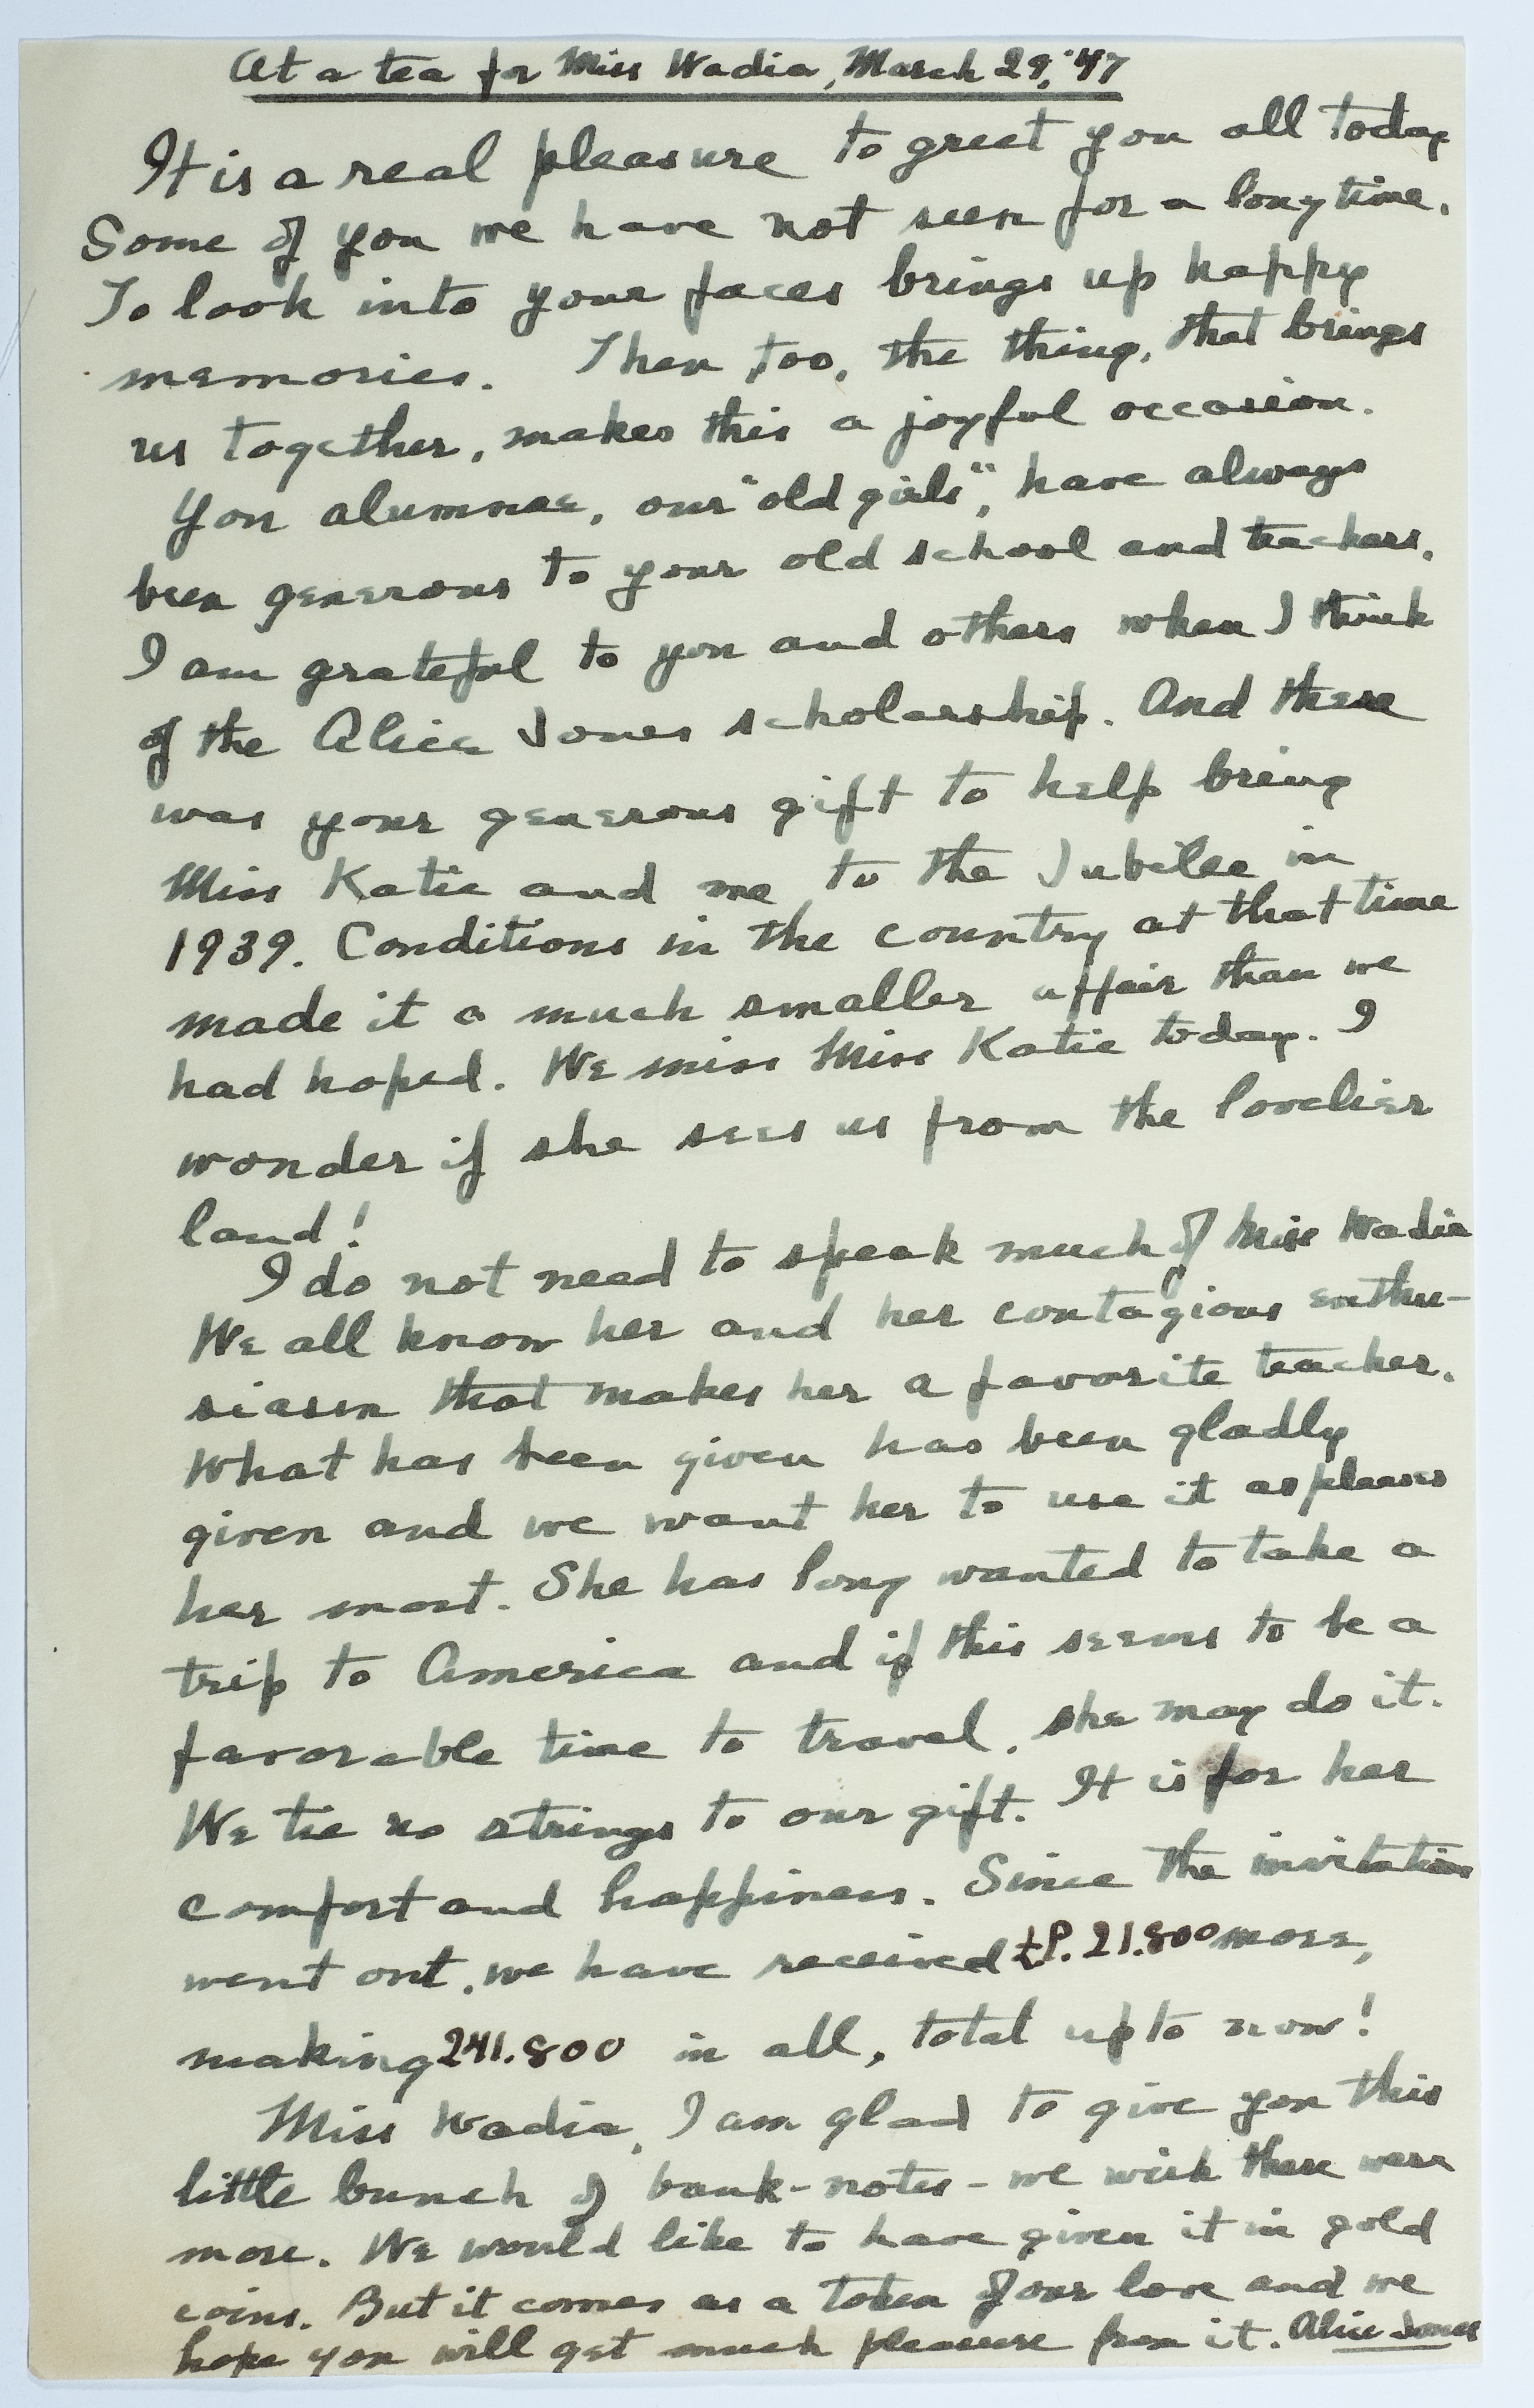 At a tea for Miss Wadia, March 29, '47
It is a real pleasure to greet you all today
Some of you we have not seen for a long time.
To look into your faces brings up happy
memories. Then too, the thing, that brings
us together, makes this a joyful occasion.
You alumnae, our "old girls", have always
been generous to your old school and teachers.
I am grateful to you and others when I think
of the Alice Jones scholarship. And there
was your generous gift to help bring
Miss Katie and me to the Jubilee in
1939. Conditions in the country at that time
made it a much smaller affair than we
had hoped. We miss Miss Katie today. I
wonder if she sees us from the lovelier
land!
I do not need to speak much of Miss Wadia
We all know her and her contagious enthu-
siasm that makes her a favorite teacher.
What has been given has been gladly
given and we want her to use it as pleases
her most. She has long wanted to take a
trip to America and if this seems to be a
favorable time to travel, she may do it.
We tie no strings to our gift. It is for her
comfort and happiness. Since the invitation
went out, we have received £P. 21.800 more,
making 241.800 in all, total up to now!
Miss Wadia, I am glad to give you this
little bunch of bank-notes - we wish there were
more. We would like to have given it in gold
coins. But it comes as a token of our love and we
hope you will get much pleasure from it. Alice Jones